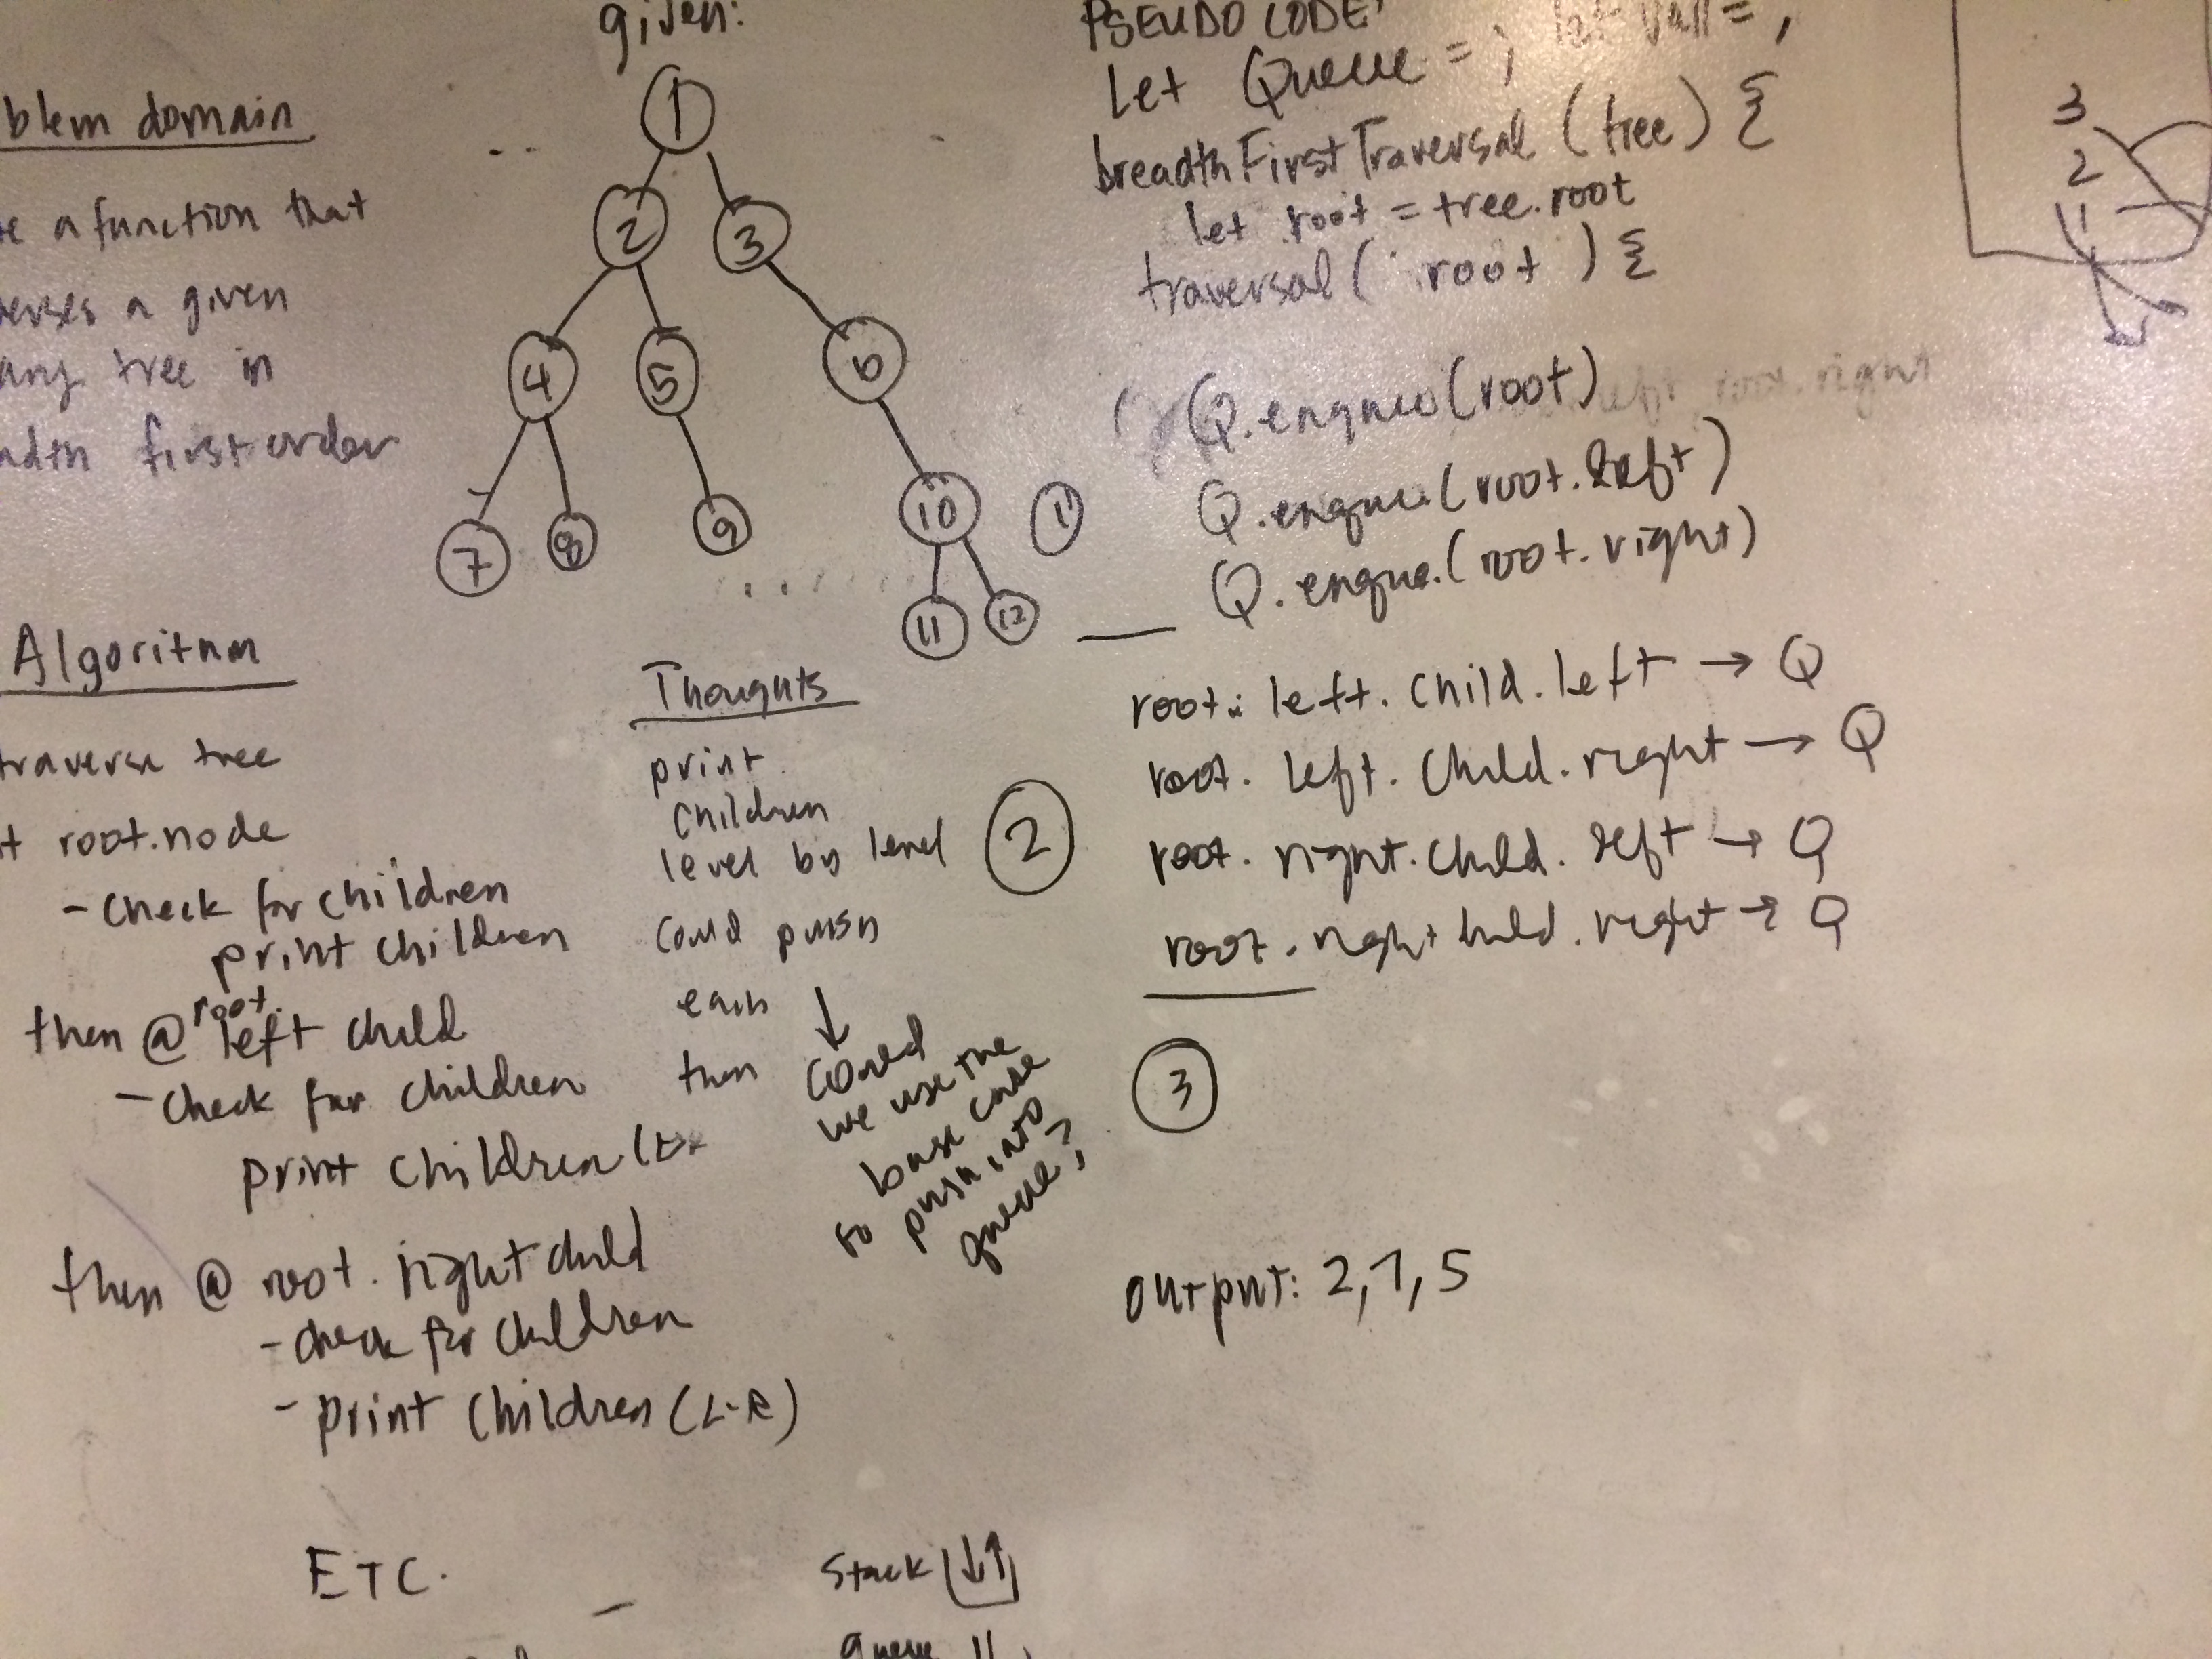 given:
1
2
3
4
5
6
7
8
9
10
11
12
blem domain
e a function that
erses a given
any tree in
adth first order
Algorithm
traverse tree
t root.node
- check for children
print children
then @ root. left child
- check for children
print children (L
then @ root. right child
- check for children
- print children (L-R)
ETC.
Thoughts
print
children
level by level
could push
each
then
↓
could
we use the
base case
to push into
queue?
Stack ↓↑
queue
PSEUDO CODE:
Let Queue = ; let
breadthFirstTraversal (tree) {
let root = tree.root
traversal ( root ) {
1
Q.enqueu(root)
left root.right
Q.enque.(root.left)
Q.enque.(root.right)
2
root. left. child. left → Q
root. left. child. right → Q
root. right. child. left → Q
root. right hild. right → Q
3
output: 2, 7, 5
3
2
1